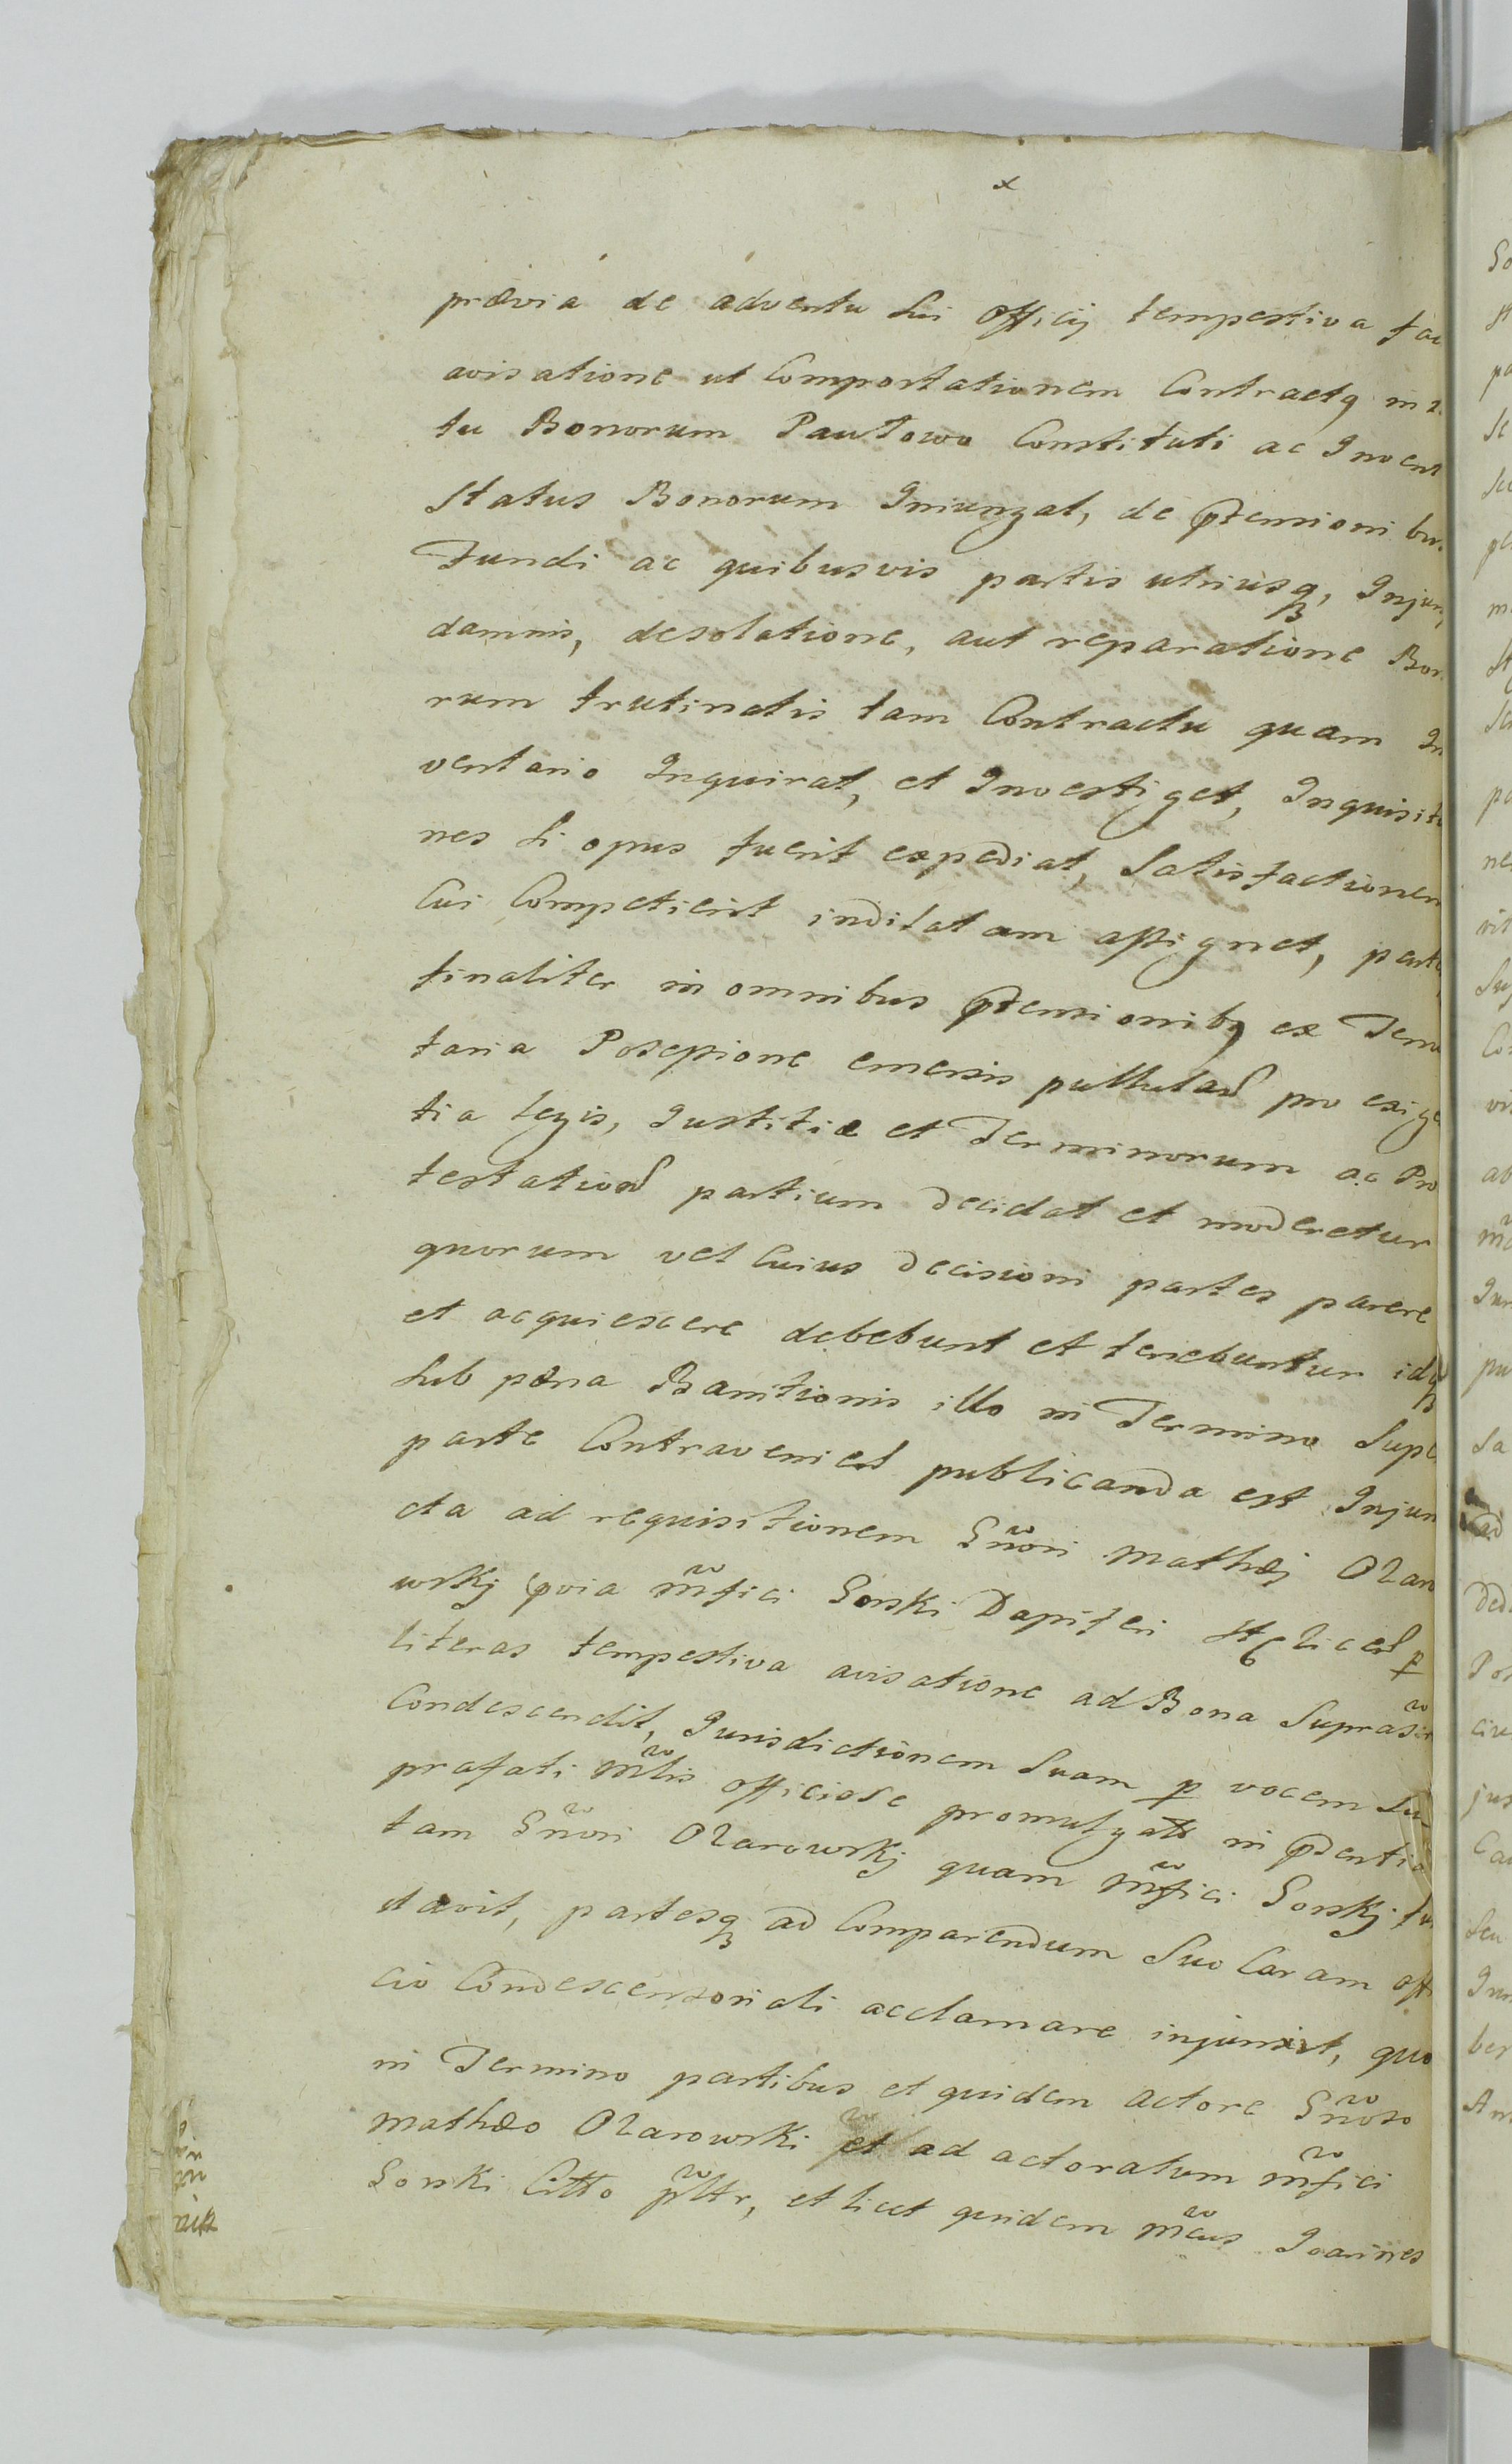 prævia de adventu Sui Officij tempestiva fac
avisatione ut Comportationem Contractq in r
tu Bonorum Pawłowo Constituti ac Invent
Status Bonorum Iniungat, de ptensionibu
Fundi ac quibusvis partis utriusq, Injur
damnis, desolatione, aut reparatione Bon
rum trutinatis tam Contractu quam In
ventario Inquirat, et Investiget, Inquisiti
nes Si opus fuerit expediat, Satisfactionem
Cui Competierit inditatam assignet, parte
finaliter in omnibus ptensionibq ex Tenu
taria Possessione emersis pullulan pro exige
tia legis, Justitiæ et Terminorum ac Pro
testation partium decidat et moderetur
quorum vel Cuius decisioni partes parere
et acquiescere debebunt et tenebuntur idq
Sub pæna Banitionis illo in Termino Supe
parte Contravenien publicanda est Injun
cta ad requisitionem Gnosi Mathæj Ożaro
wskj pvia mfici Gorski Dapiferi p
literas tempestiva avisatione ad Bona Supra
Condescendit, Jurisdictionem Suam p vocem Su
præfati Mlis officiose promulgat in pdentia
tam Gnosi Ożarowskj quam Mfici Gorskj fu
davit, partesq ad Comparendum Suo Coram offi
cio Condescensoriali acclamare injunxit, quo
in Termino partibus et quidem Actore Gnoso
Mathæo Ożarowski et ad actoratum mfici
Gorski Citto pltr, et licet quidem Mcus Joannes